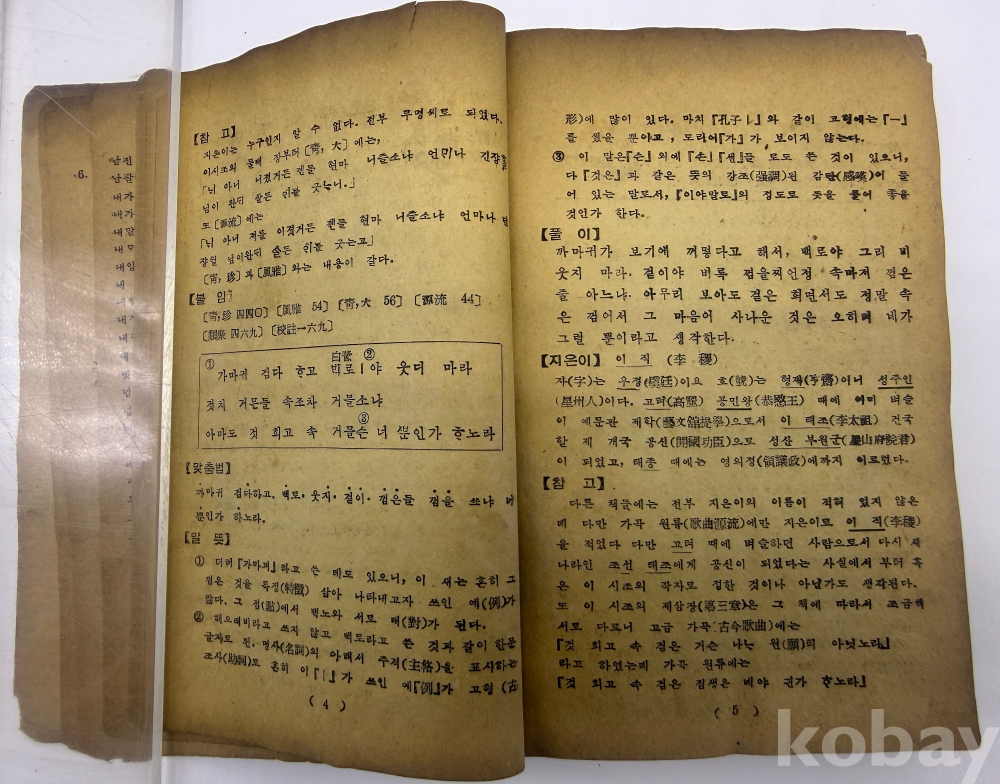 【참 고】
지은이는 누구인지 알 수 없다. 전부 무명씨로 되었다.
이시조의 둘째 장부터 [靑, 大] 에는,
「님 아니 너겼거든 젠들 현마 너즐소냐 언미나 긴장
님이 완디 살든 인를
또 [源流] 에는
「님 아니 져를 이졋거든 젠들 현마 너즐소냐 언마나
장헐 님이완디 슬든 인를 긋는고」
[靑, 珍] 과 [風雅] 와는 내용이 같다.
【불 암】
[靑, 珍 四四〇] [風雅 54] [靑, 大 56] [源流 44]
[類聚 四六九] [校註一六九]
白鷺 ②
① 가마귀 검다 ᄒᆞ고 ㅣ야 웃디 마라
것치 거믄들 속조차 거믈소냐
③
아마도 것 희고 속 거믈슨 너 ᄲᅮᆫ인가 ᄒᆞ노라
【맞춤법】
까마귀 검다하고. 백로. 웃지. 겉이. 껌은들 껌을 쏘냐 네
뿐인가 하노라.
【말 뜻】
① 더러 『가마괴』라고 쓴 데도 있으니, 이 새는 흔히 그
껌은 것을 특징(特徵) 삼아 나타내고자 쓰인 예(例)가
많다. 그 점(點)에서 백노와 서로 대(對)가 된다.
② 해오래비라고 쓰지 않고 백로라고 쓴 것과 같이 한문
글자로 된. 명사(名詞)의 아래서 주격(主格)을 표시하는
조사(助詞)도 흔히 이 『ㅣ』가 쓰인 예『例』가 고형 (古
( 4 )
形)에 많이 있다. 마치 『孔子ㅣ』와 같이 고형에는 『ㅣ』
를 썼을 뿐아고, 도리어『가』가 보이지 않는다.
③ 이 말은『슨』외에『손』『션』들 도도 쓴 것이 있으니,
다 『것은』과 같은 뜻의 강조(强調)된 감탄(感嘆)이 들
어 있는 말로서, 『이야말로』의 정도로 뜻을 풀어 좋을
것인가 한다.
【풀 이】
까마귀가 보기에 꺼멓다고 해서, 백로야 그리 비
웃지 마라. 겉이야 비록 껌을찌언정 속마저 껌은
줄 아느냐. 아무리 보아도 겉은 희면서도 정말 속
은 껌어서 그 마음이 사나운 것은 오히려 네가
그럴 뿐이라고 생각한다.
【지은이】 이 직 (李 稷)
자(字)는 우정(虞廷)이요 호(號)는 형재(亨齋)이니 성주인
(星州人)이다. 고려(高麗) 공민왕(恭愍王) 때에 이미 벼슬
이 예문관 제학(藝文館提學)으로서 이 태조(李太祖) 건국
할 제 개국 공신(開國功臣)으로 성산 부원군(星山府院君)
이 되었고, 태종 때에는 영의정(領議政)에까지 이르렀다.
【참 고】
다른 책들에는 전부 지은이의 이름이 적혀 있지 않은
데 다만 가곡 원류(歌曲源流)에만 지은이로 이 직(李稷)
을 적었다 다만 고려 때에 벼슬하던 사람으로서 다시 새
나라인 조선 태조에게 공신이 되었다는 사실에서 부터 혹
은 이 시조의 작자로 정한 것이나 아닌가도 생각된다.
또 이 시조의 제삼장(第三章)은 그 책에 따라서 조금씩
서로 다르니 고금 가곡(古今歌曲)에는
『것 희고 속 검은 거슨 나는 원(願)티 아닛노라』
라고 하였는데 가곡 원류에는
『것 희고 속 검은 짐생은 네야 귄가 ᄒᆞ노라』
( 5 )
·6·
kobay